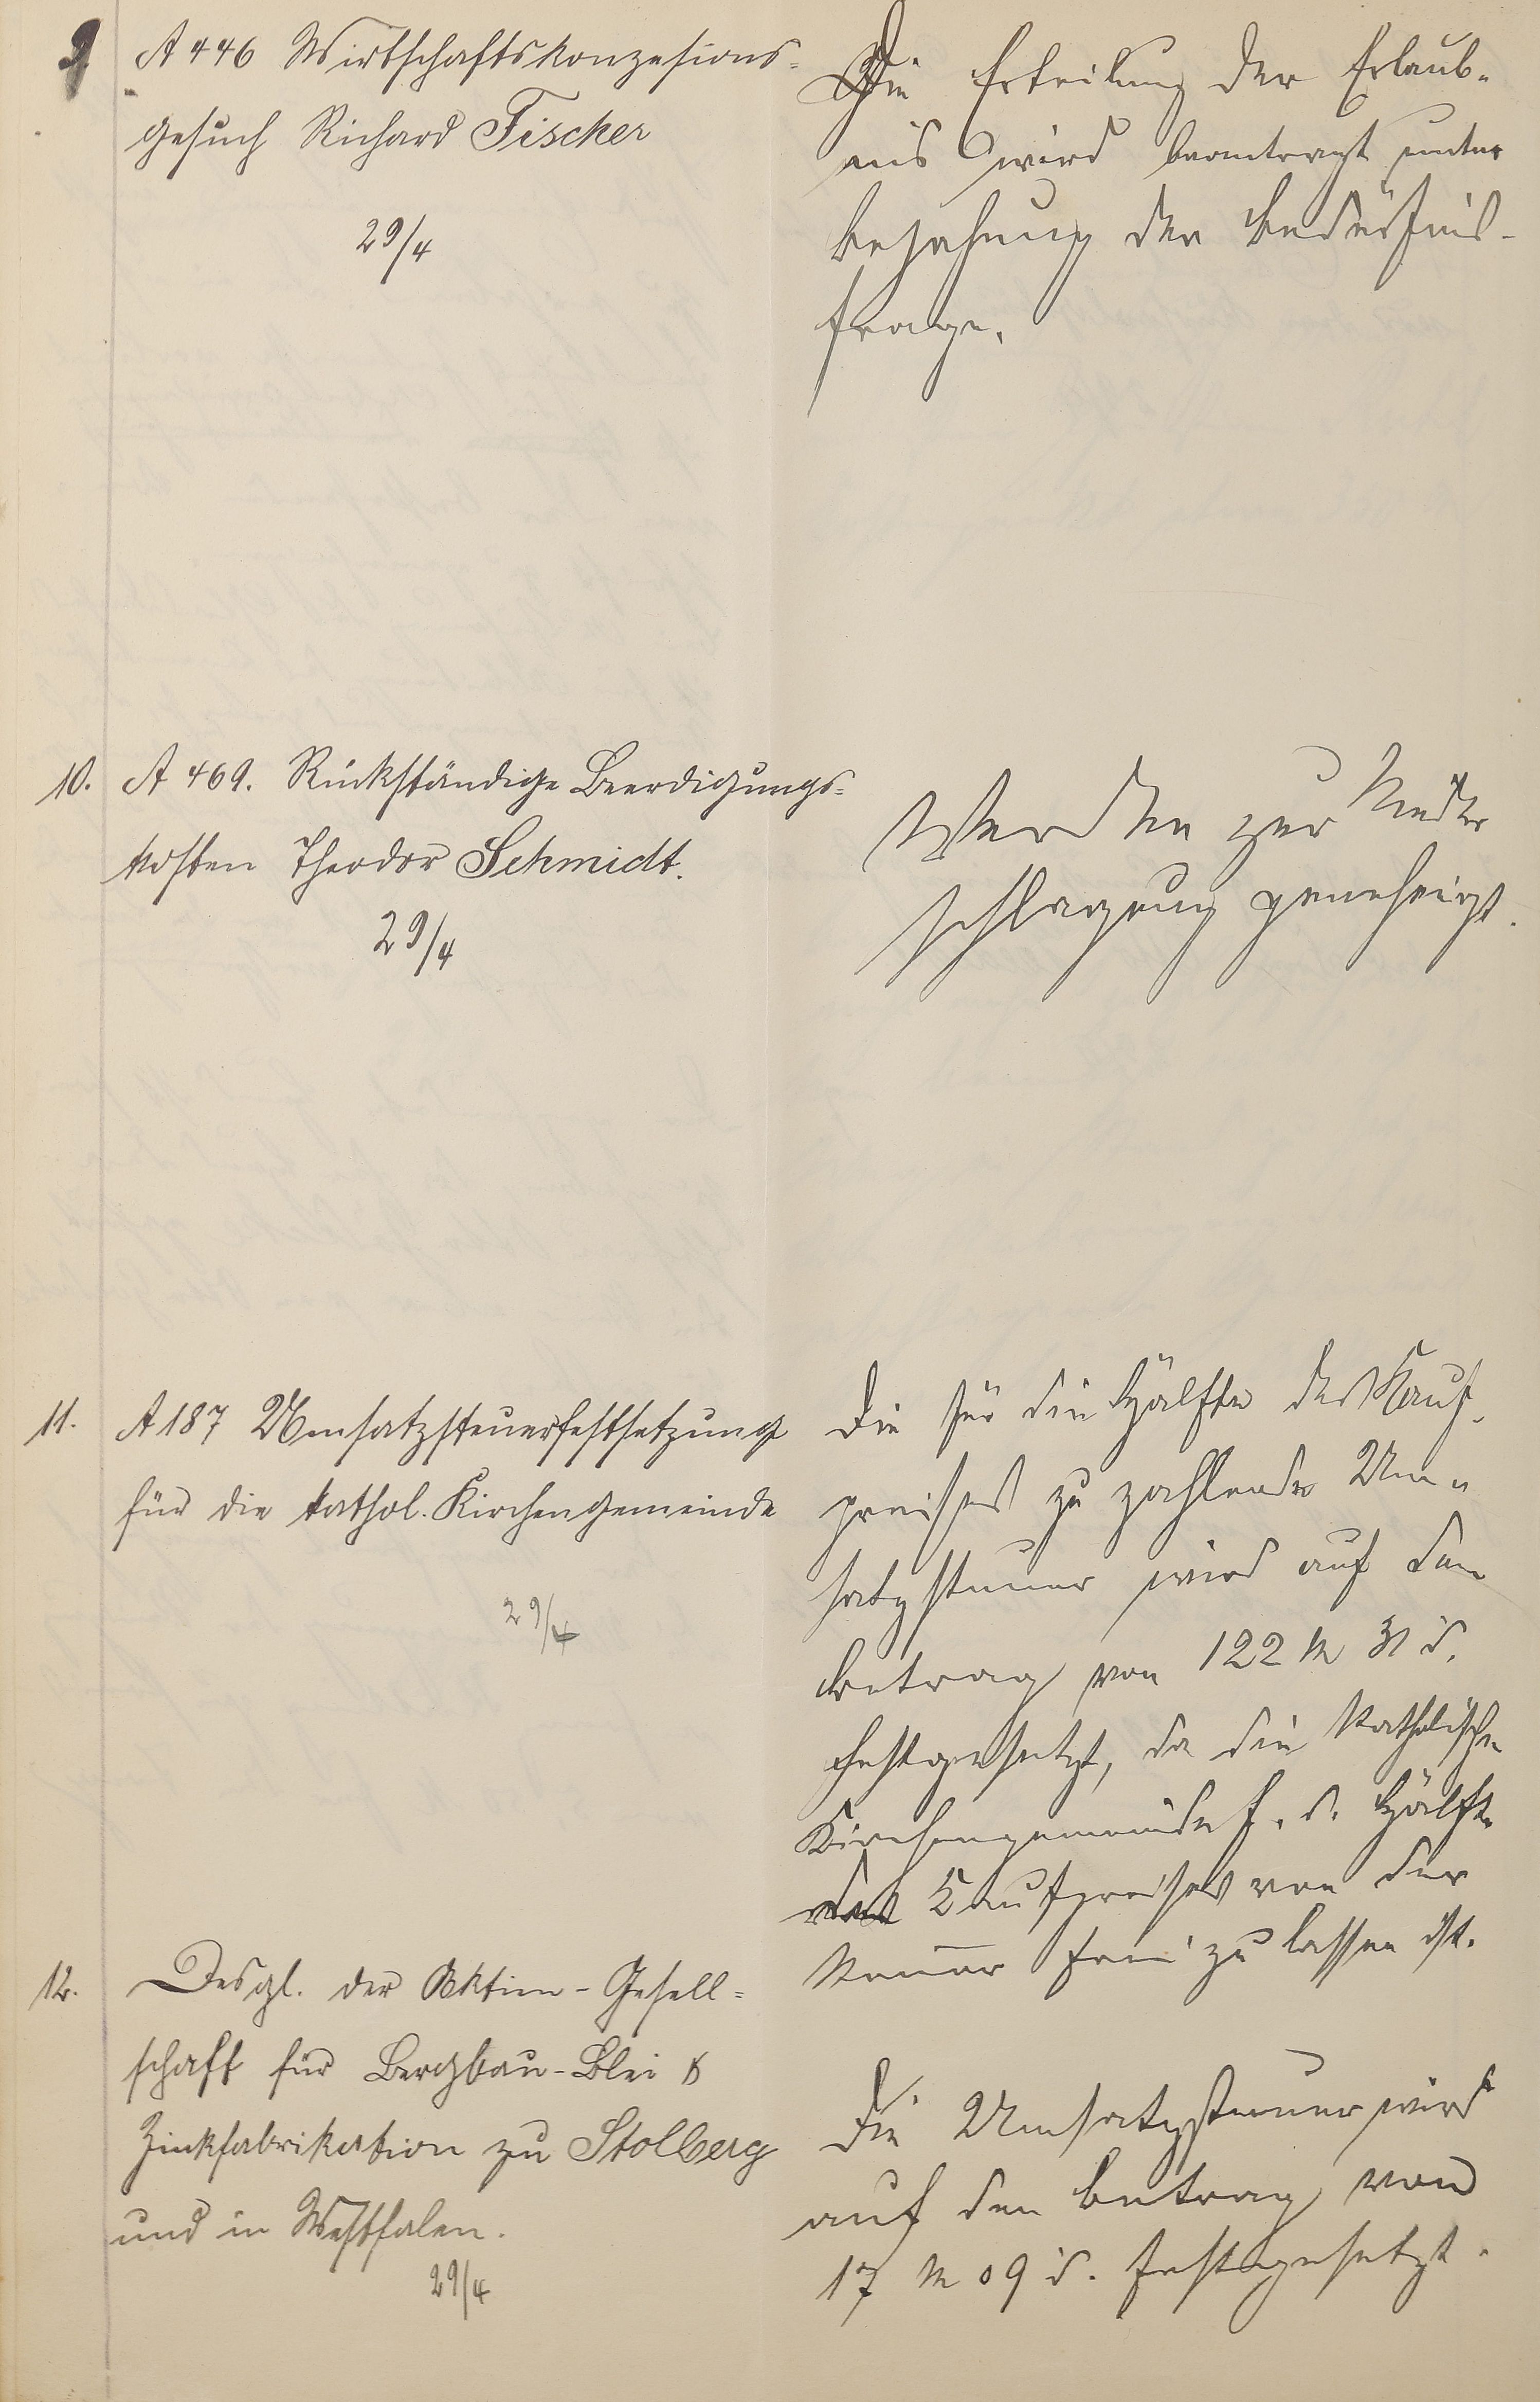 9. A 446 Wirtschaftskonzesions=
gesuch Richard Fischer
29/4
Die Erteilung der Erlaub-
nis wird beantragt unter
Bejahung der Bedürfnis-
frage.
10. A 469. Rückständige Beerdigungs=
kosten Theodor Schmidt.
29/4
Werden zur Nieder
schlagung genehmigt.
11. A 187 Umsatzsteuerfestsetzung
für die kathol. Kirchengemeinde
29/4
Die für die Hälfte des Kauf-
preises zu zahlende Um-
satzsteuer wird auf den
Betrag von 122 M 31 d.
festgesetzt, da die Katholische
Kirchengemeinde f. d. Hälfte
des Kaufpreises von der
frei zu lassen ist.
12. Desgl. der Aktien-Gesell=
schaft für Bergbau-Blei &
Zinkfabrikation zu Stolberg
und in Westfalen.
29/4
Die Umsatzsteuer wird
auf den Betrag von
17 M 09 d. festgesetzt.